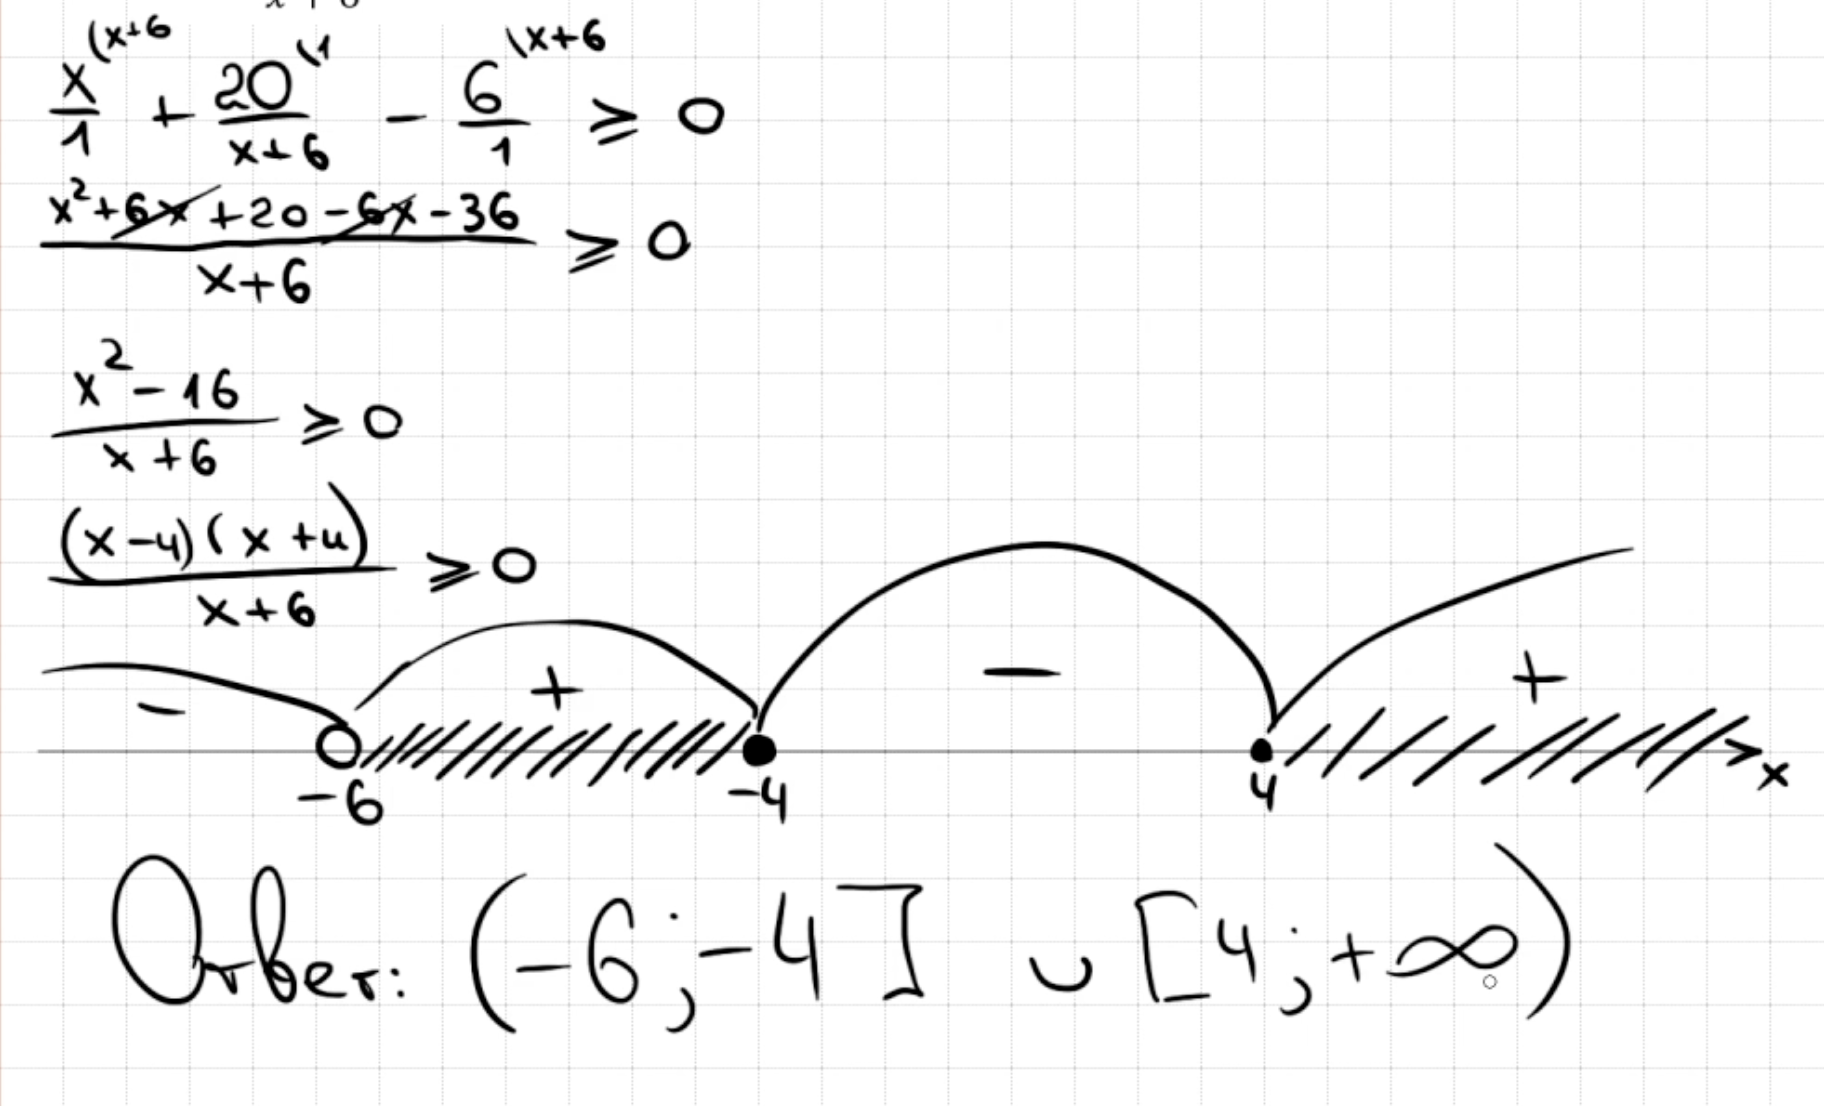 x + 6
x/1 (x+6 + 20/(x+6) (1 - 6/1 \x+6 ⩾ 0
(x²+6x+20-6x-36)/(x+6) ⩾ 0
(x²-16)/(x+6) ⩾ 0
((x-4)(x+4))/(x+6) ⩾ 0
- + - +
-6 -4 4 x
Ответ: (-6;-4] ∪ [4;+∞)